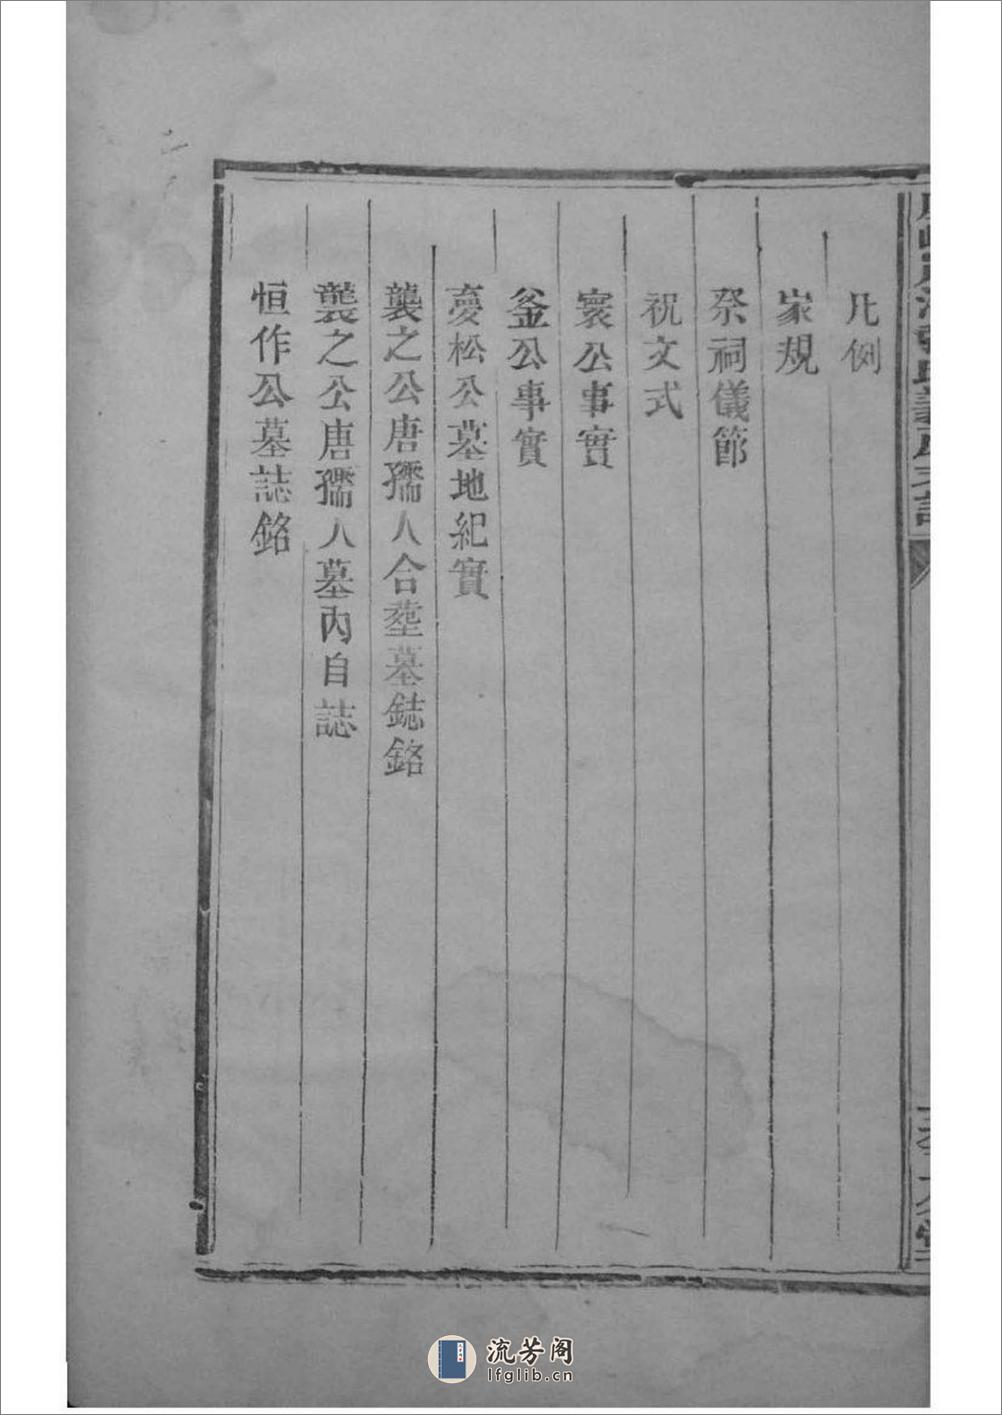 凡例
家規
祭祠儀節
祝文式
寰公事實
釜公事實
夢松公墓地紀實
襲之公唐孺人合塟墓鋕銘
襲之公唐孺人墓內自誌
恒作公墓誌銘
流芳阁
lfglib.cn